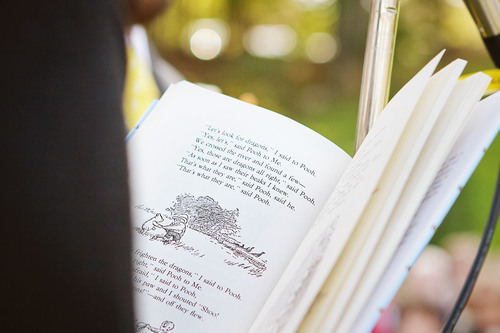 "Let's look for dragons," I said to Pooh.
"Yes, let's," said Pooh to Me.
We crossed the river and found a few—
"Yes, those are dragons all right," said Pooh.
"As soon as I saw their beaks I knew.
That's what they are," said Pooh, said he.
"That's what they are," said Pooh.
frighten the dragons," I said to Pooh.
right," said Pooh to Me.
afraid," I said to Pooh,
his paw and I shouted "Shoo!
—and off they flew.